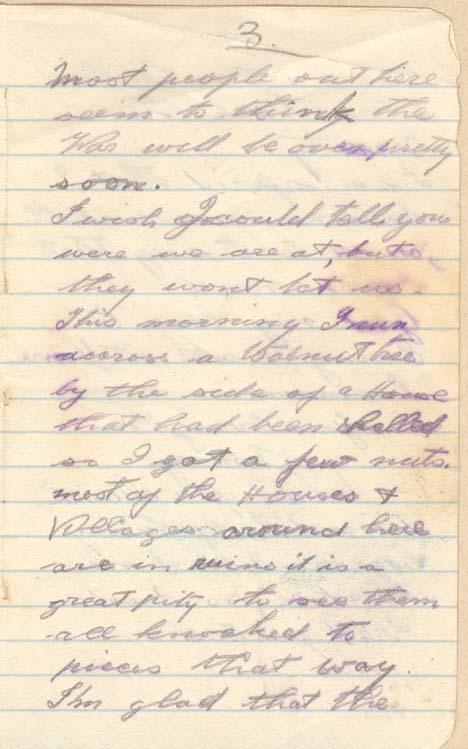 3.
Most people out here
seem to think the
War will be over pretty
soon.
I wish I could tell you
were we are at, but
they wont let us.
This morning I run
accross a Walnut tree
by the side of a House
that had been shelled
so I got a few nuts.
most of the Houses &
Villages around here
are in ruins it is a
great pity to see them
all knocked to
pieces that way.
I'm glad that the